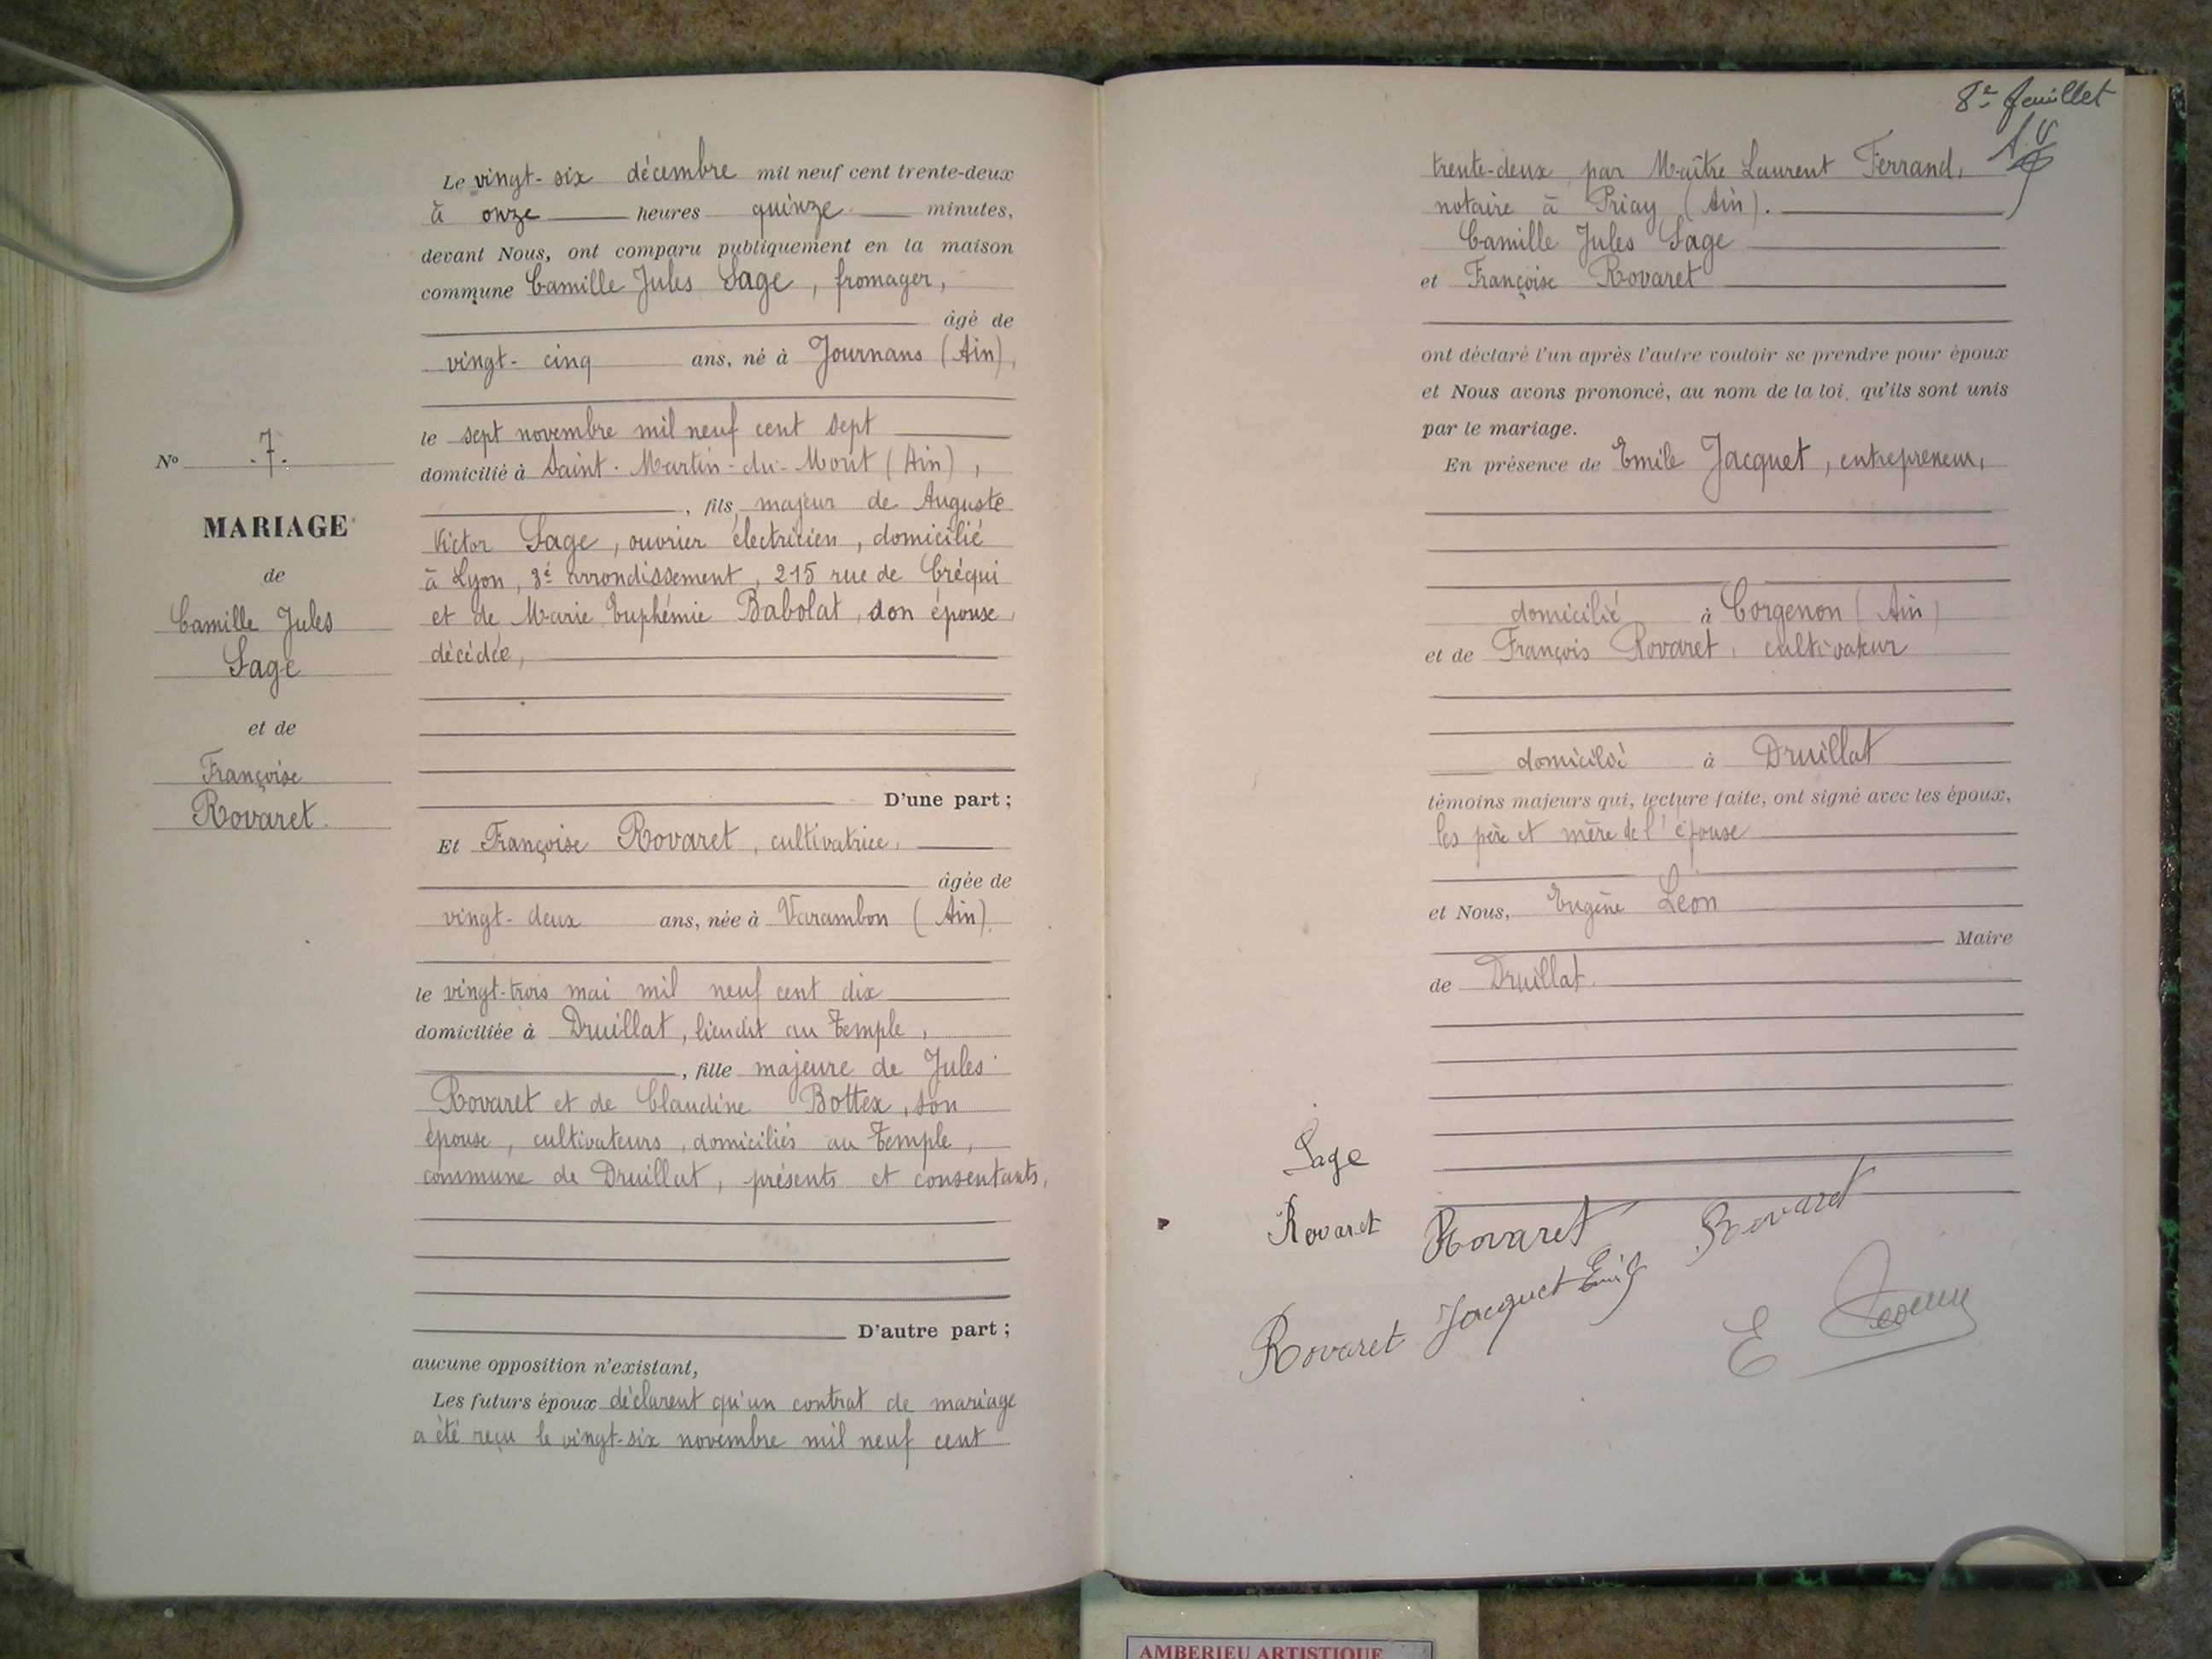 Le vingt-six décembre mil neuf cent trente-deux
à onze heures quinze minutes,
devant Nous, ont comparu publiquement en la maison
commune Camille Jules Sage, fromager,
âgé de
vingt-cinq ans, né à Journans (Ain),
le sept novembre mil neuf cent sept
domicilié à Saint-Martin-du-Mont (Ain),
, fils majeur de Auguste
Victor Sage, ouvrier électricien, domicilié
à Lyon, 3è arrondissement, 215 rue de Créqui
et de Marie Euphémie Babolat, son épouse,
décédée,
D'une part ;
Et Françoise Rovaret, cultivatrice,
âgée de
vingt-deux ans, née à Varambon (Ain)
le vingt-trois mai mil neuf cent dix
domiciliée à Druillat, lieudit au Temple,
, fille majeure de Jules
Rovaret et de Claudine Bottex, son
épouse, cultivateurs, domiciliés au Temple,
commune de Druillat, présents et consentants,
D'autre part ;
aucune opposition n'existant,
Les futurs époux déclarent qu'un contrat de mariage
a été reçu le vingt-six novembre mil neuf cent
No 7.
MARIAGE
de
Camille Jules
Sage
et de
Françoise
Rovaret.
8e feuillet
trente-deux, par Maître Laurent Ferrand,
notaire à Priay (Ain).
Camille Jules Sage
et Françoise Rovaret
ont déclaré l'un après l'autre vouloir se prendre pour époux
et Nous avons prononcé, au nom de la loi, qu'ils sont unis
par le mariage.
En présence de Emile Jacquet, entrepreneur,
domicilié à Corgenon (Ain)
et de François Rovaret, cultivateur
domicilié à Druillat
témoins majeurs qui, lecture faite, ont signé avec les époux,
les père et mère de l'épouse
et Nous, Eugène Léon
Maire
de Druillat.
Sage
Rovaret Rovaret Rovaret
Rovaret Jacquet Emile
AMBERIEU ARTISTIQUE